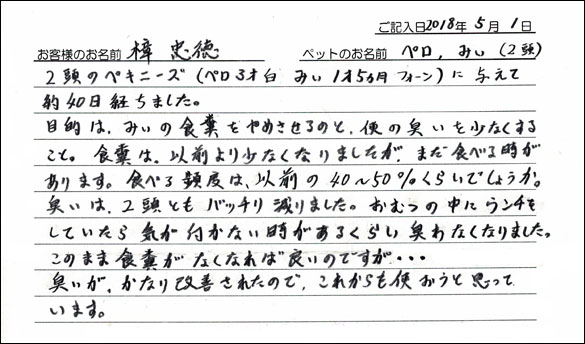 ご記入日2018年5月1日
お客様のお名前 樟 忠徳 ペットのお名前 ペロ, みい(2頭)
2頭のペキニーズ(ペロ3才白 みい1才5ヵ月フォーン)に与えて
約40日経ちました。
目的は、みいの食糞をやめさせるのと、便の臭いを少なくする
こと。食糞は、以前より少なくなりましたが、まだ食べる時が
あります。食べる頻度は、以前の40~50%くらいでしょうか。
臭いは、2頭ともバッチリ減りました。おむつの中にウンチを
していたら気が付かない時があるくらい臭わなくなりました。
このまま食糞がなくなれば良いのですが・・・
臭いが、かなり改善されたので、これからも使おうと思って
います。